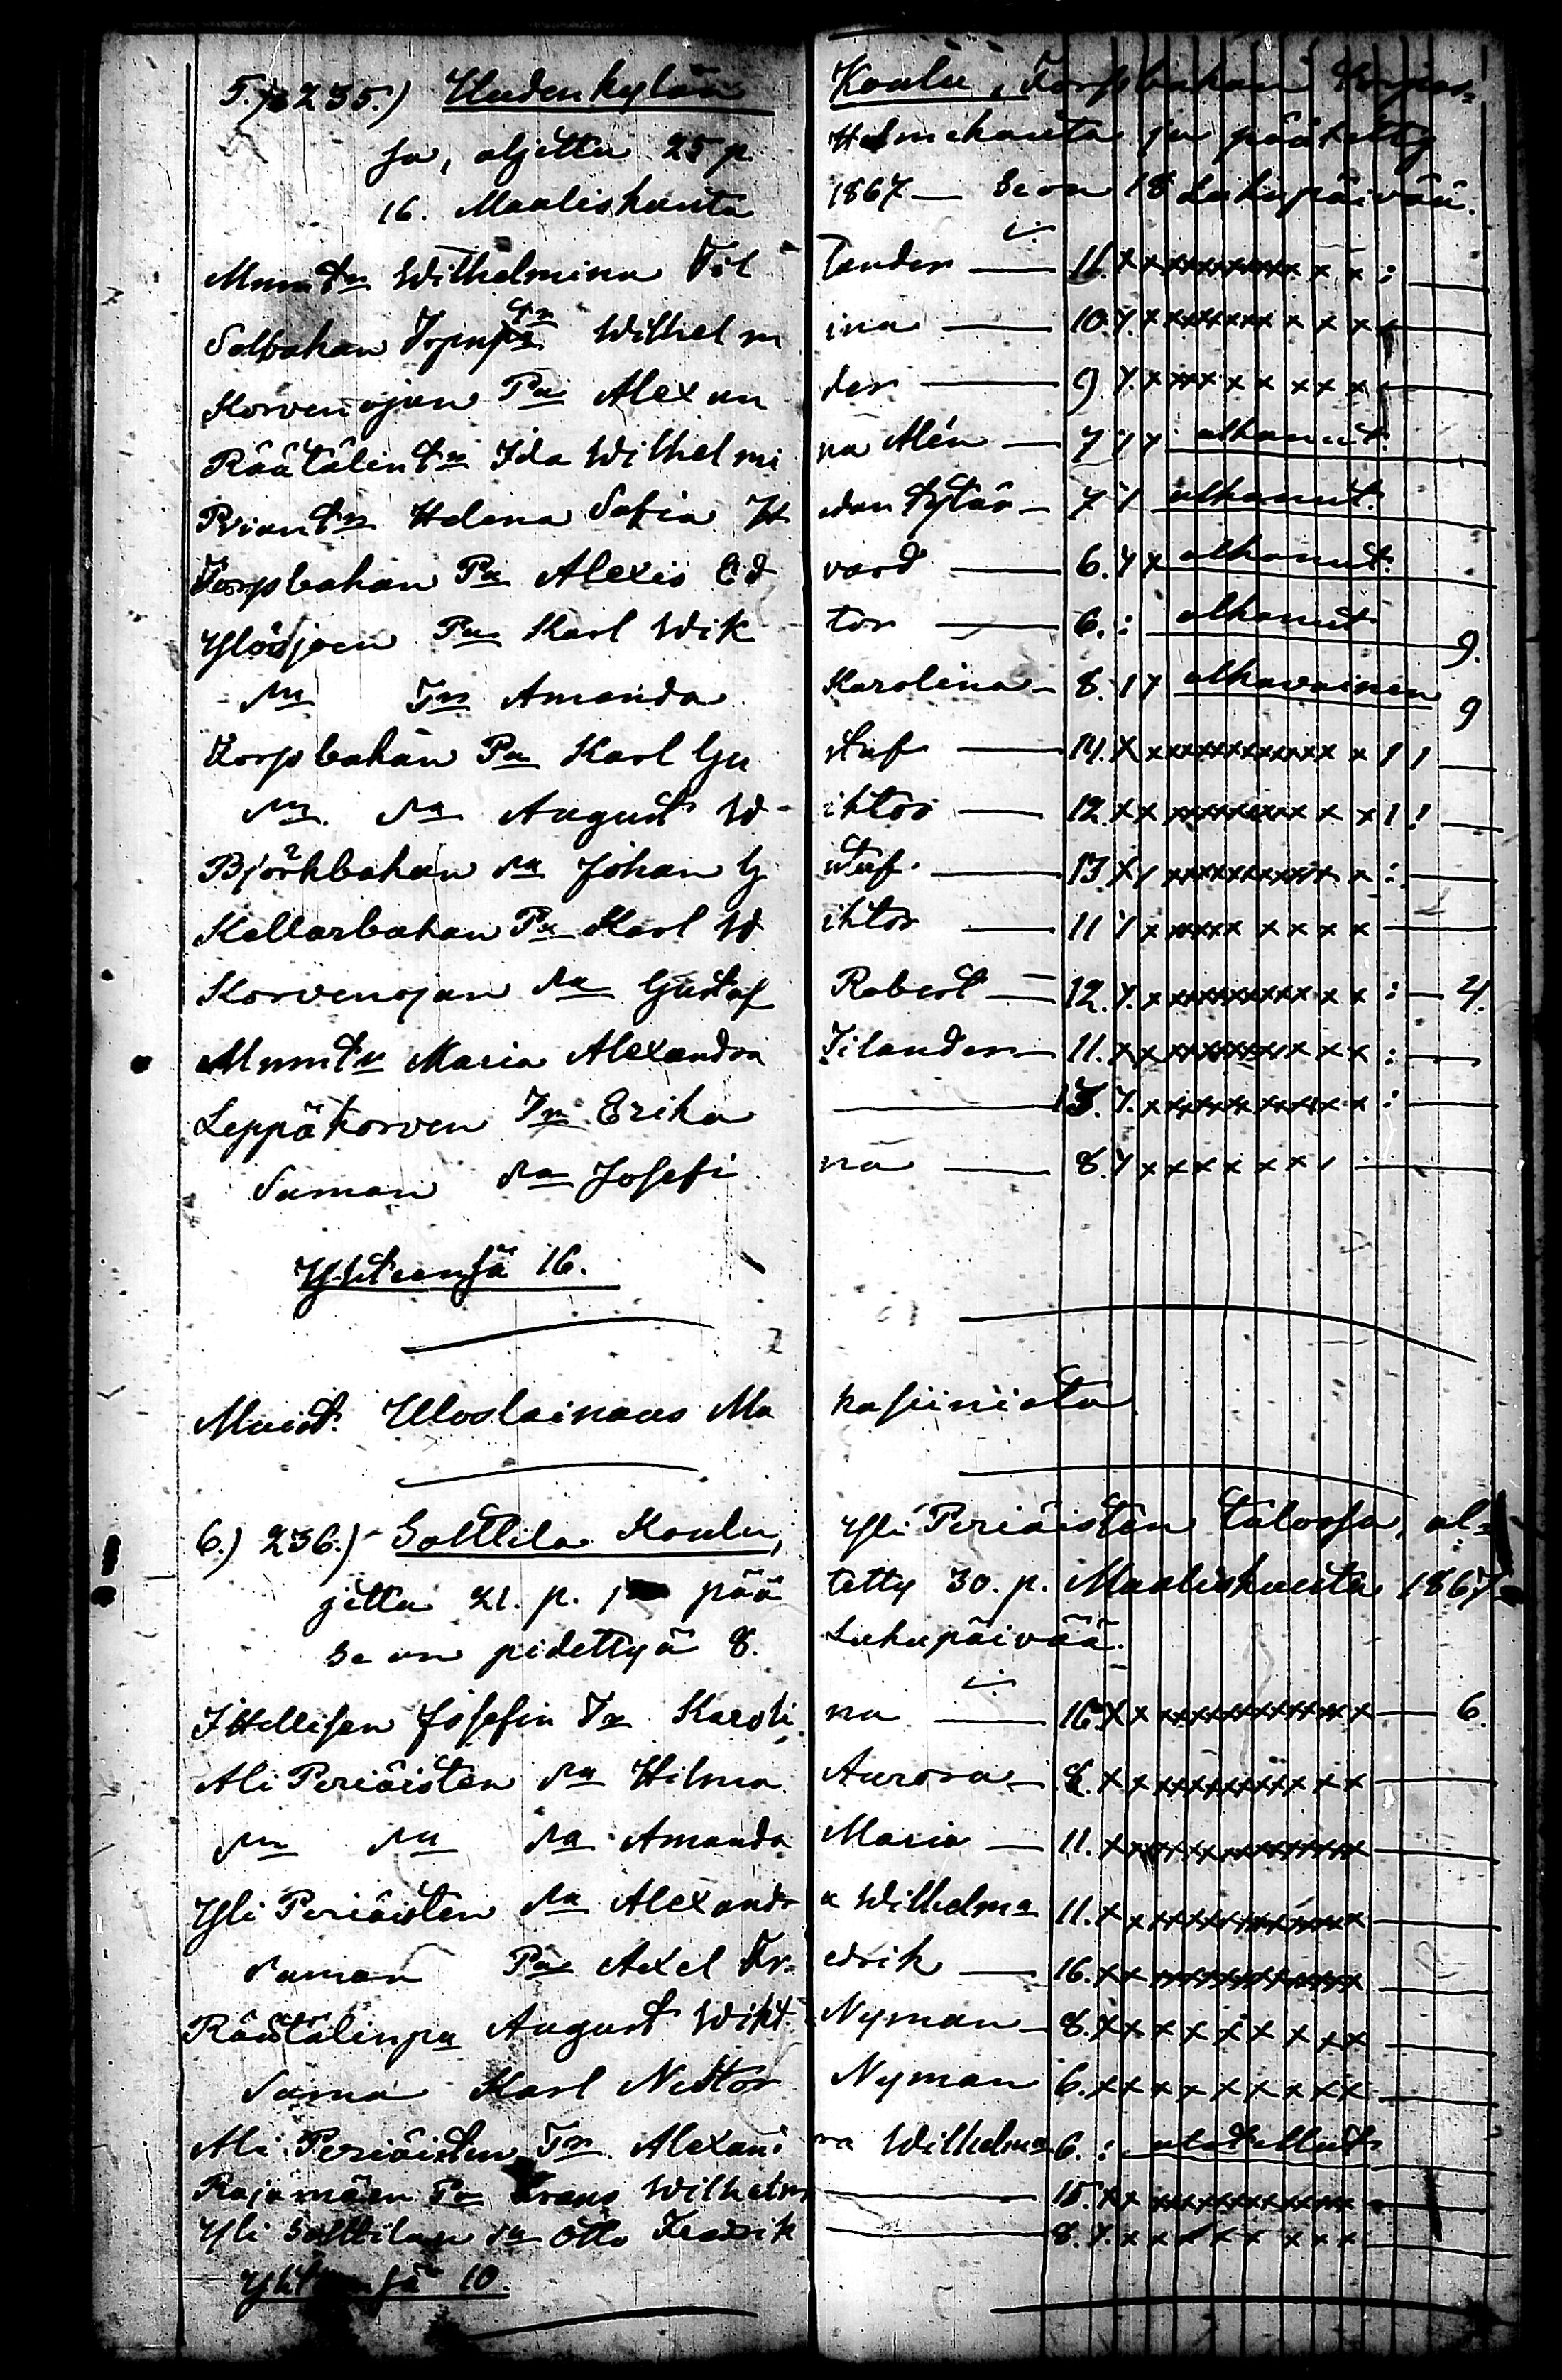 5.) 235.) Uudenkylän Koulu, Torpbakan Torpas-
sa, aljettu 25 p. Helmekuuta ja päätetty
16. Maaliskuuta 1867 — Se on 18 Lukupäivää.
Muur Tr Wilhelmina Til lander — 11. x x xxxxxxxxxx x x :
Salbakan Tr Wilhelm ina — 10. x x xxxxxxx x x x
Korvenojan Pa Alexan der — 9 x x xxx x x x x x
Räätälin Tr Ida Wilhelmi na Alén — 7 alkanut.
Tr Helena Sofia H edan tytär — 7 alkanut.
Torpbakan Pa Alexis Ed vard — 6. alkanut.
Ylösjoen Pa Karl Wik tor — 6. : alkanut 9.
sn Tr Amanda Karolina — 8. alkavainen 9
Torpbakan Pa Karl Gu staf — 14. x x xxxxxxxxxx x
sn. sa August W ihtor — 12. x x xxxxxxxx x x
Björkbakan sa Johan G ustaf. — 13 x xxxxxxxxxx x :
Kellarbakan Pa Karl W ihtor — 11 x xxxxx x x x x
Korvenojan sa Gustaf Robert — 12. x xxxxxxxxx x x : — 4.
Muur Tr Maria Alexandra Tilander — 11. x x xxxxxxx x x x :
Leppäkorven Tr Erika — 13. x xxxxxxxxx x :
Saman sa Josefi na — 8. x x x x x x x
Yhteensä 16.
Muist. Uloslainaus Ma kasiinista
6.) 236.) Solttila Koulu, Yli Periäisten talossa, al-
jettu 21. p. ja pää tetty 30. p. Maaliskuuta 1867
Se on pidettyä 8. Lukupäivää.
Josefin Tr Karoli na — 16. x x xxxxxxxxxxx — 6.
Ali Periäisten sa Hilma Aurora — 8. x x xxxxxxxx x x x
sn sn sa Amanda Maria — 11. x xxxxxxxxxxxx
Yli Periäisten sa Alexandr a Wilhelma 11. x xxxxxxxxxxxx
saman Pa Axel Fr. edrik — 16. x x xxxxxxxxxxx
Räätälin pa August Wikt. Nyman — 8. x x x x x x x x x
Sama Karl Nestor Nyman 6. x x x x x x x x x
Ali Periäisten Tr Alexan ra Wilhelma 6. :
Rajamäen Pa Frans Wilhelm — 15. x x xxxxxxxxxx
Yli Solttilan sa Otto Fredrik — 8. x x x x x x x x x
Yhteensä 10.